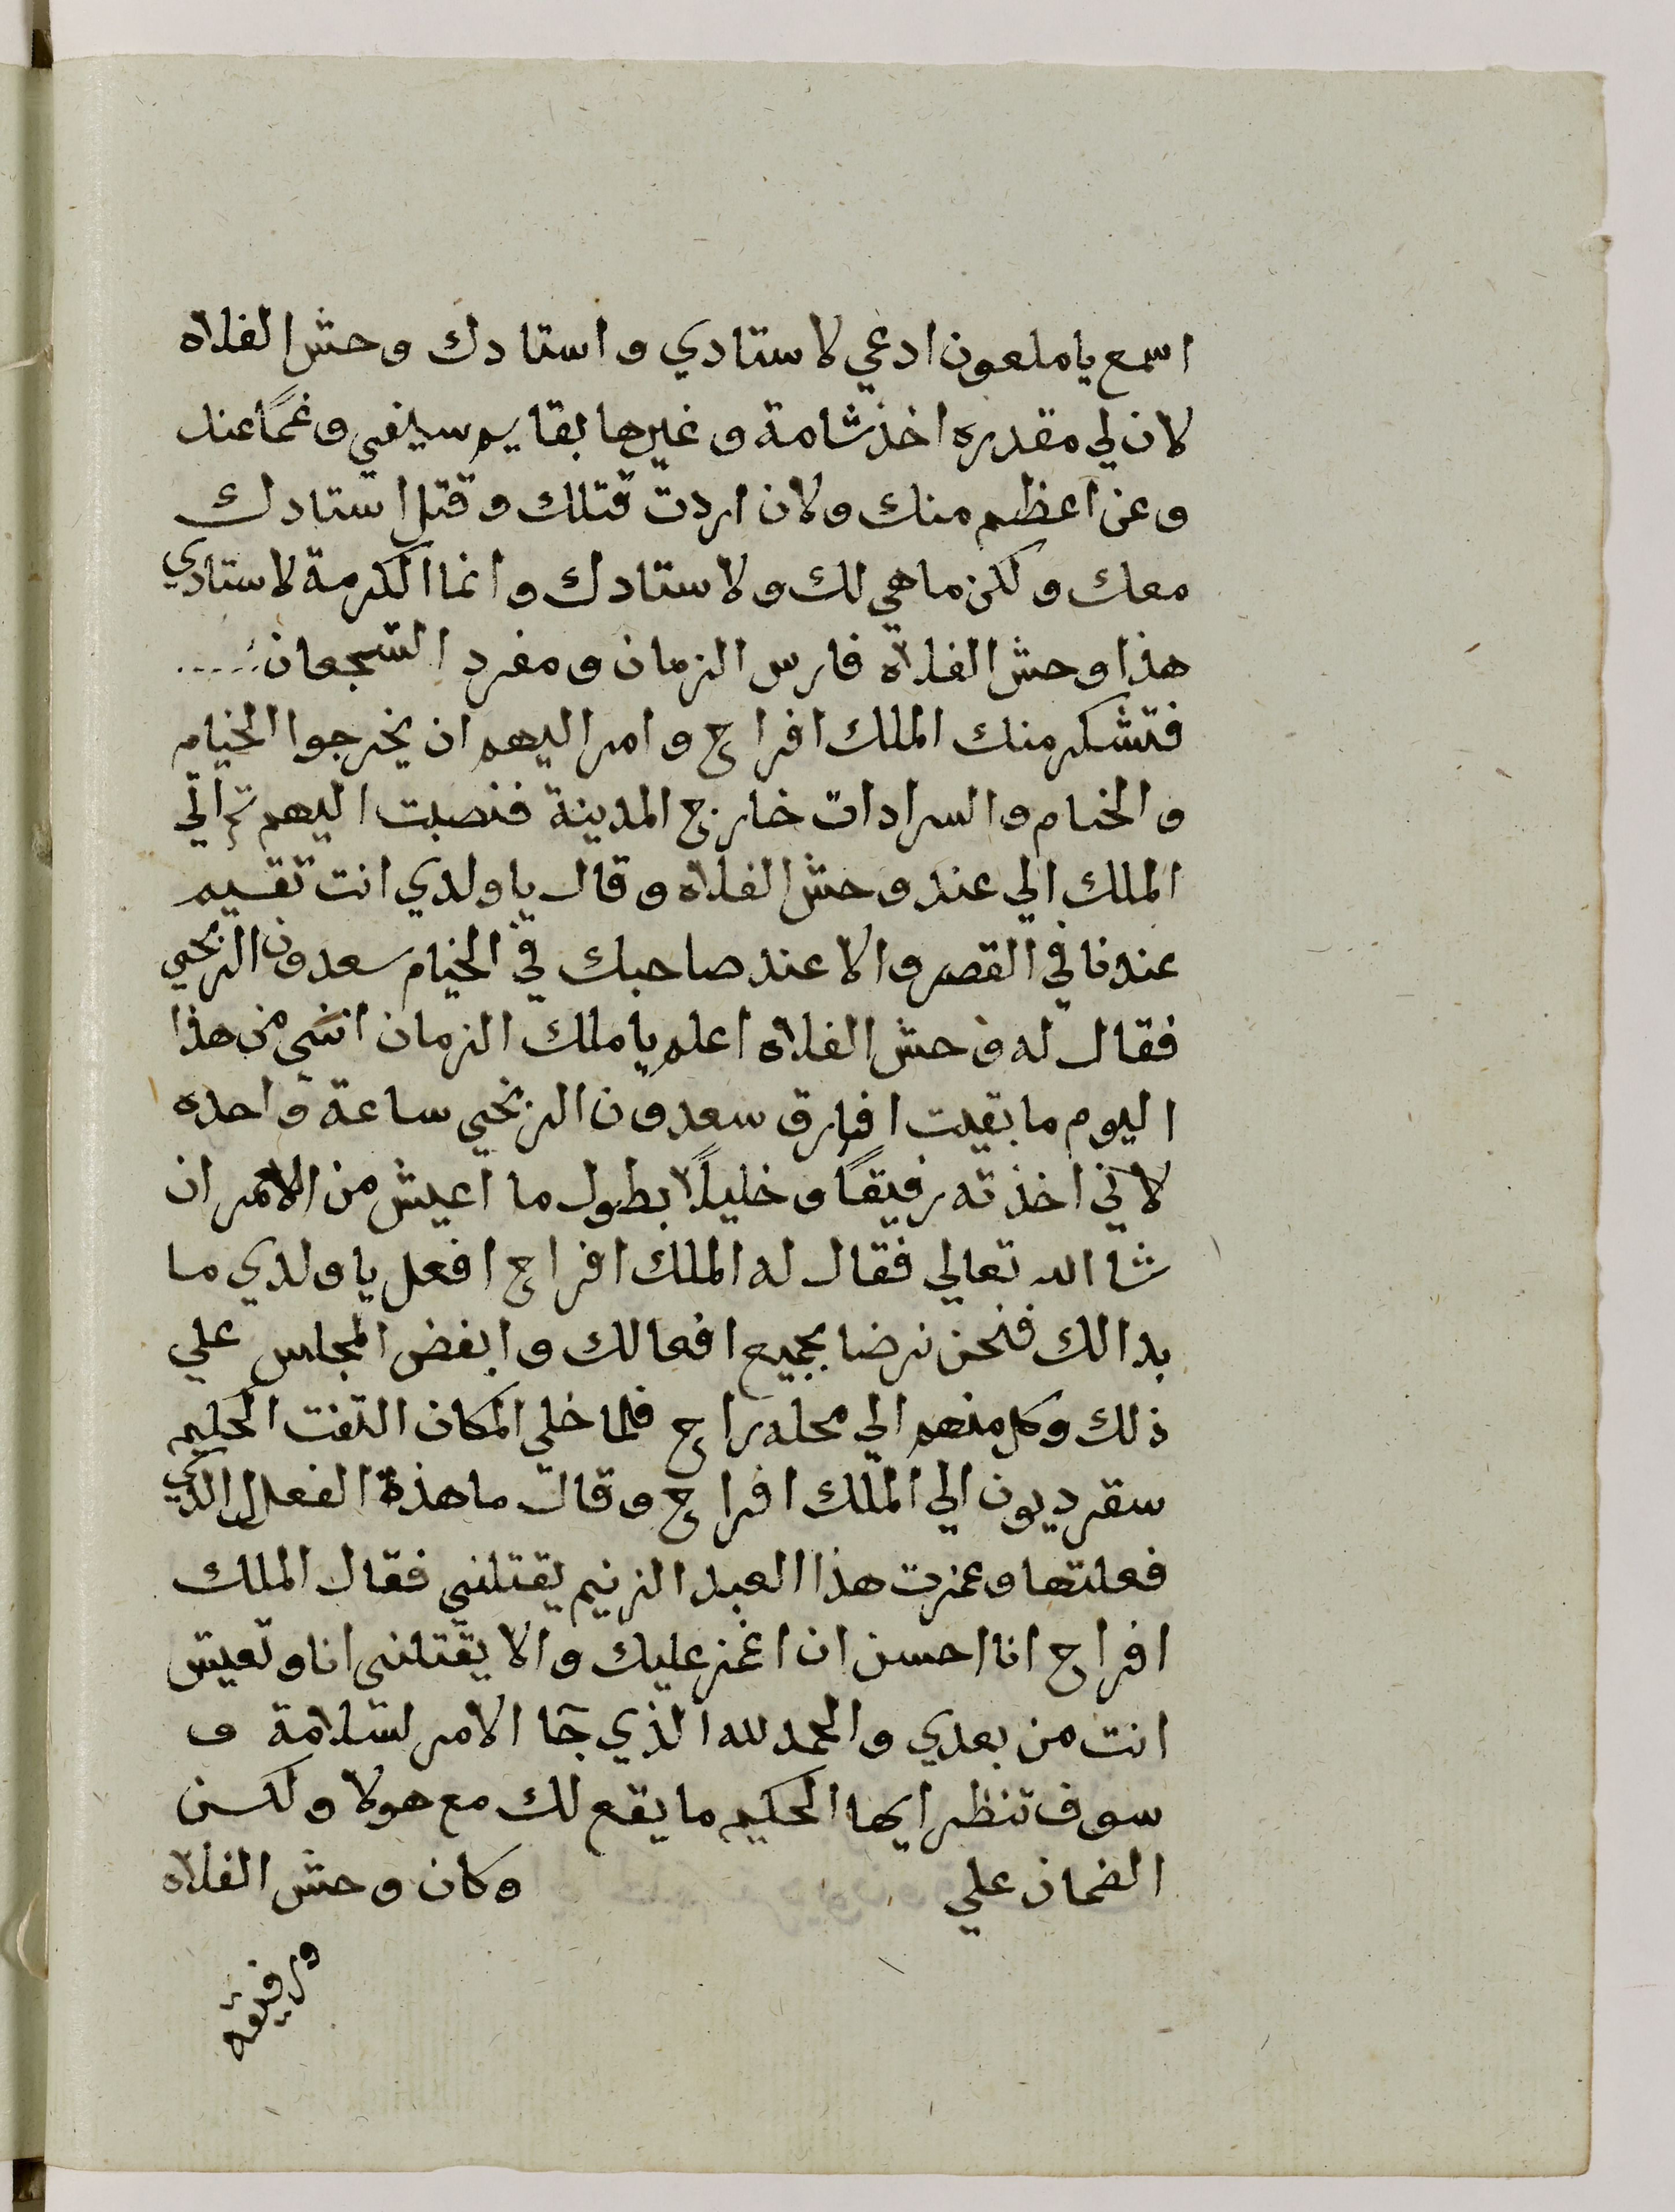 اسمع يا ملعون ادعي لاستادي و استادك وحش الفلاه
لان لي مقدره اخذ شامة وغيرها بقايم سيفي وغمًا عنك
وعن اعظم منك ولان اردت قتلك وقتل استادك
معك ولكن ما هي لك ولاستادك وانما الكرمة لاستادي
هذا وحش الفلاة فارس الزمان ومفرد الشجعان
فتشكر منك الملك افراح وامر اليهم ان يخرجوا الخيام
والخيام والسرادات خارج المدينة فنصبت اليهم ثم اتي
الملك الي عند وحش الفلاه وقال يا ولدي انت تقيم
عندنا في القصر والا عند صاحبك في الخيام سعدون الزنجي
فقال له وحش الفلاه اعلم يا ملك الزمان انني من هذا
اليوم ما بقيت افارق سعدون الزنجي ساعة واحده
لاني اخذته رفيقًا وخليلًا بطول ما اعيش من الامر ان
شا الله تعالي فقال له الملك افراح افعل يا ولدي ما
بدالك فنحن نرضا بجميع افعالك وانفض المجلس علي
ذلك وكل منهم الي محله راح فلما خلي المكان التفت الحكيم
سقرديون الي الملك افراح وقال ما هذة الفعل الذي
فعلتها وغمزت هذا العبد الزنيم يقتلني فقال الملك
افراح انا احسن ان اغمز عليك والا يقتلني انا وتعيش
انت من بعدي والحمد لله الذي جا الامر لسلامة و
سوف تنظر ايها الحكيم ما يقع لك مع هولا ولكن
الضمان علي وكان وحش الفلاه
ورفيقه